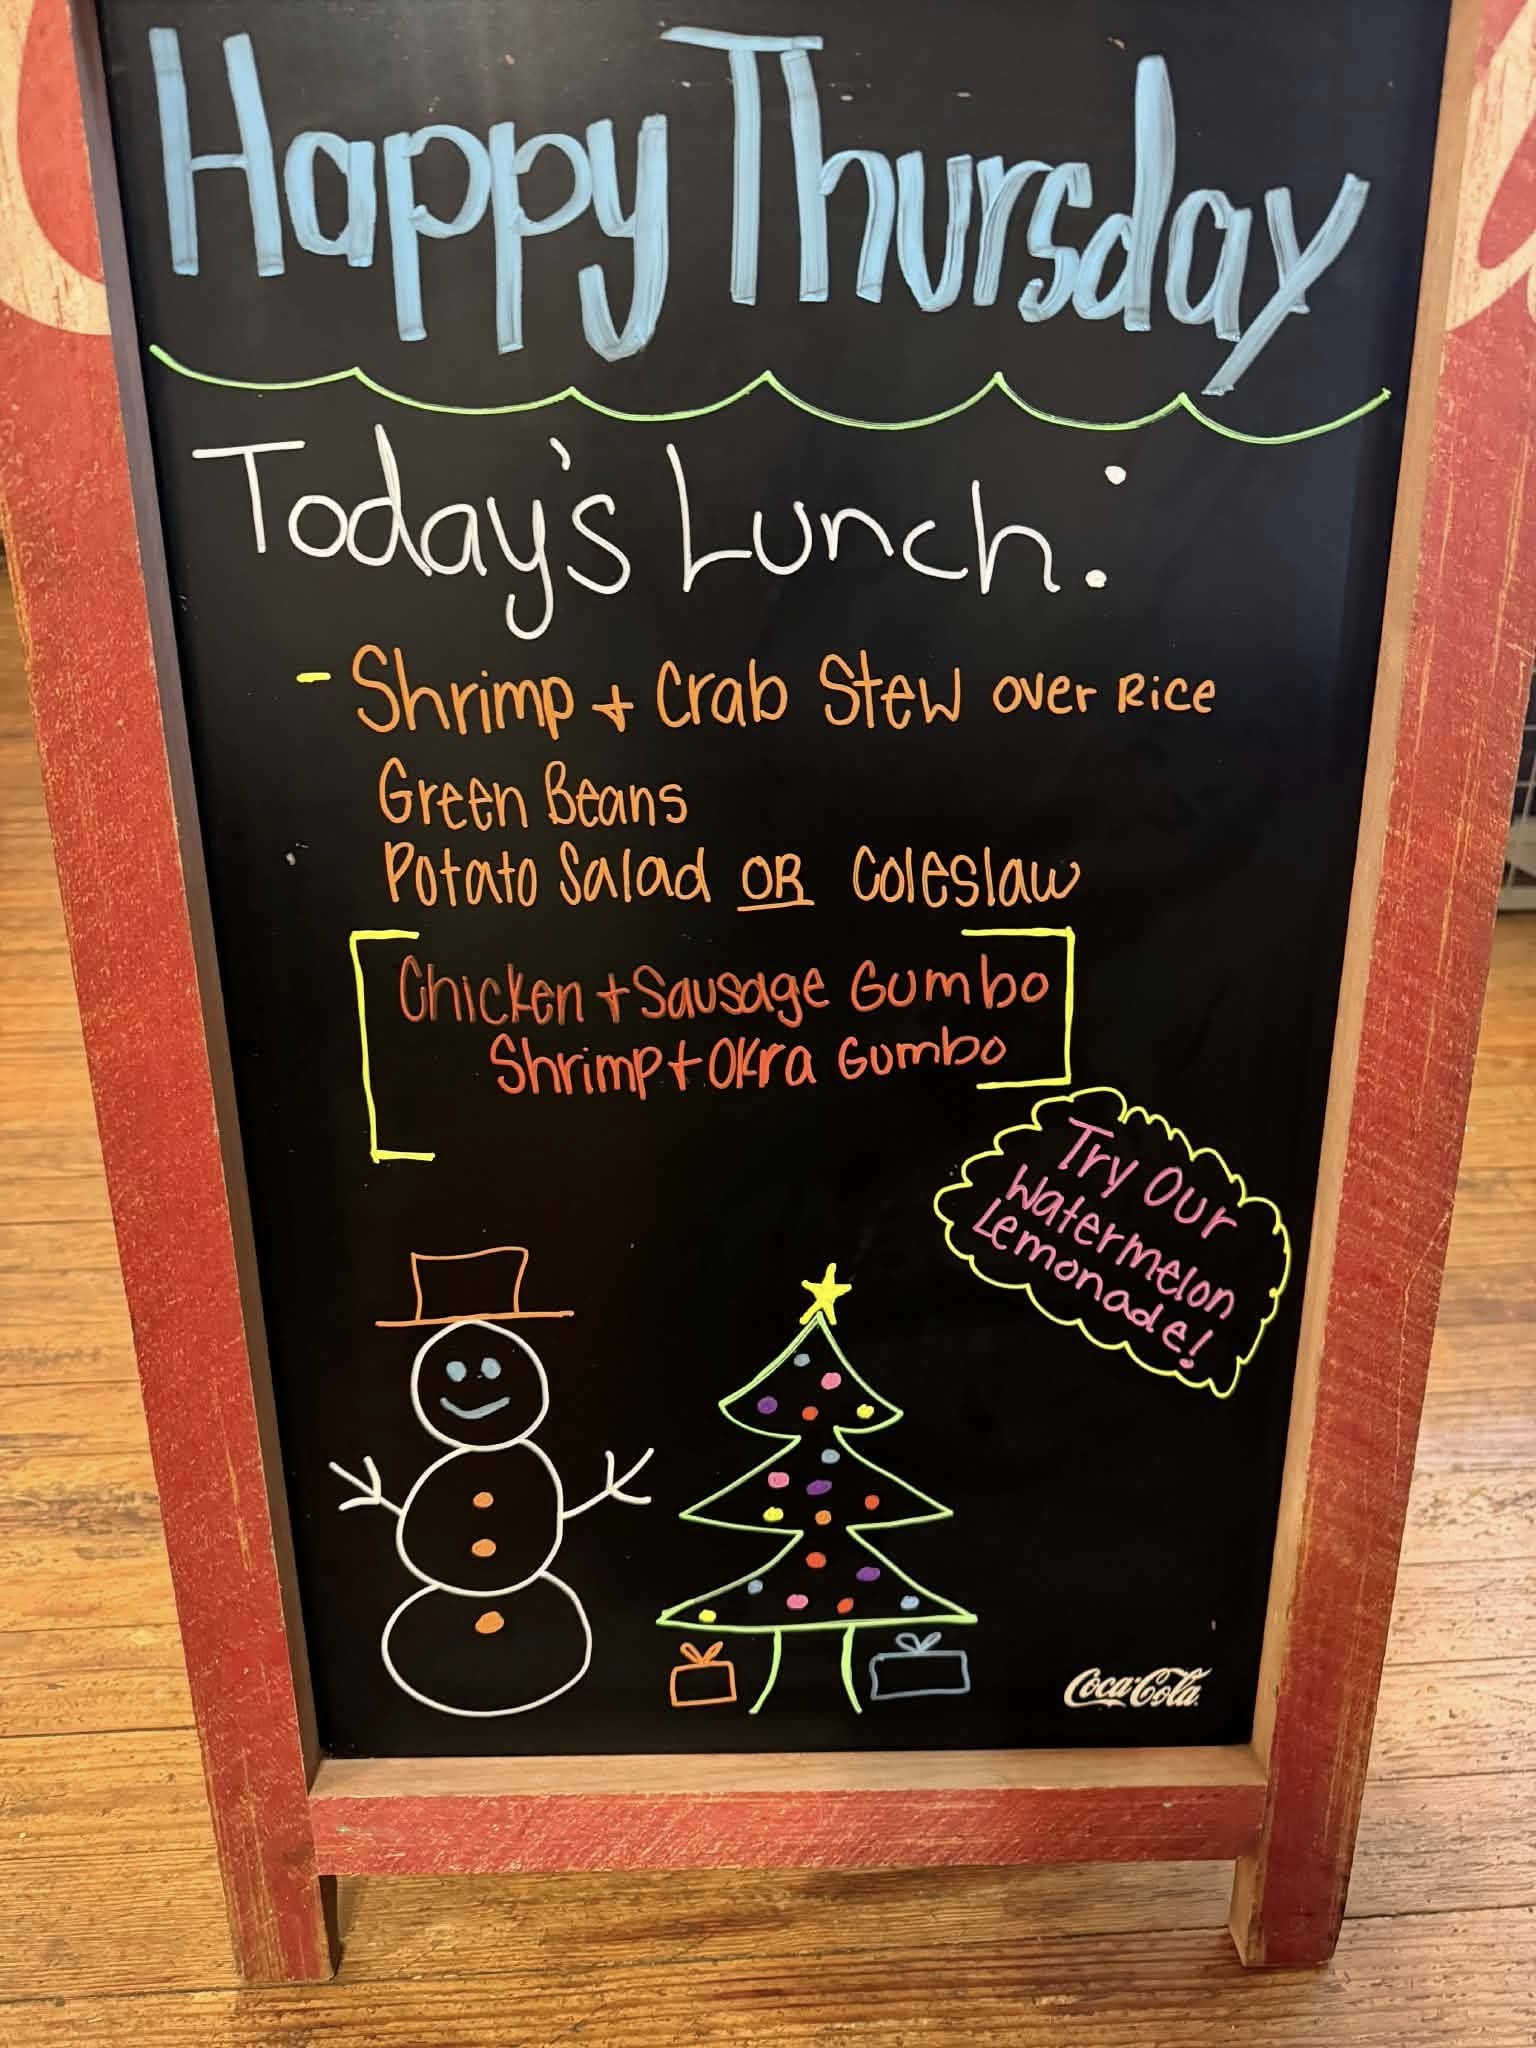 Happy Thursday
Today's Lunch:
- Shrimp + Crab Stew over Rice
Green Beans
Potato Salad OR Coleslaw
Chicken + Sausage Gumbo
Shrimp + Okra Gumbo
Try Our
Watermelon
Lemonade!
Coca-Cola